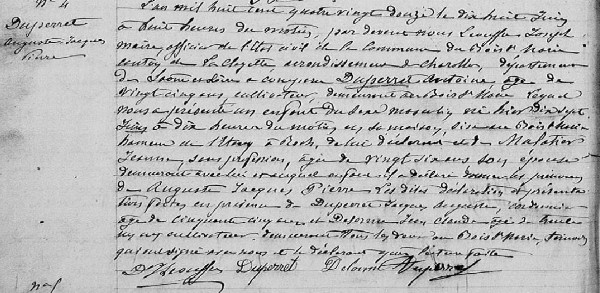 N° 4
Duperret
Auguste Jacques
Pierre
L'an mil huit cent quatre vingt douze le dix huit Juin
à huit heures du matin, par devant nous Joseph
maire officier de l'état civil de la Commune de Bois Ste Marie
canton de La Clayette arrondissement de Charolles, département
de Saône et Loire a comparu Duperret Antoine, âgé de
vingt cinq ans, cultivateur, demeurant au Bois Ste Marie Lequel
nous a présenté un enfant du sexe masculin né hier dix sept
Juin à dix heures du matin en sa maison, sise au Bois Ste Marie
hameau de de lui déclarant et de
Jeanne, sans profession, âgée de vingt six ans son épouse
demeurant avec lui et auquel enfant il a déclaré donner les prénoms
de Auguste Jacques Pierre Les dites déclaration et présenta-
tion faites en présence de Duperret Jacques Auguste, cordonnier
âgé de cinquante cinq ans et Jean Claude âgé de trente
ans cultivateur demeurant tous les deux au Bois Ste Marie, témoins
qui ont signé avec nous et le déclarant après lecture faite
Duperret Duperret